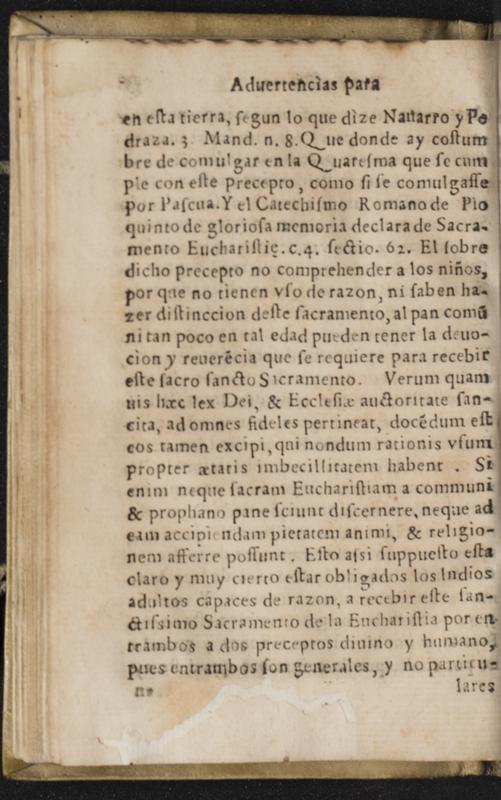 Aduertencias para
en esta tierra, segun lo que dize Nauarro y Pe
draza. 3 Mand. n. 8. Que donde ay costum
bre de comulgar en la Quaresma que se cum
ple con este precepto, como si se comulgasse
por Pascua. Y el Catechismo Romano de Pio
quinto de gloriosa memoria declara de Sacra-
mento Eucharistię. c. 4. sectio. 62. El sobre
dicho precepto no comprehender a los niños,
por que no tienen vso de razon, ni saben ha-
zer distinccion deste sacramento, al pan comũ
ni tan poco en tal edad pueden tener la deuo-
cion y reuerẽcia que se requiere para recebir
este sacro sancto Sacramento. Verum quam
uis hæc lex Dei, & Ecclesiæ auctoritate san-
cita, ad omnes fideles pertineat, docẽdum est
eos tamen excipi, qui nondum rationis vsum
propter ætatis imbecillitatem habent. Si
enim neque sacram Eucharistiam a communi
& prophano pane sciunt discernere, neque ad
eam accipiendam pietatem animi, & religio-
nem afferre possunt. Esto assi suppuesto esta
claro y muy cierto estar obligados los Indios
adultos capaces de razon, a recebir este san-
ctissimo Sacramento de la Eucharistia por en-
trambos a dos preceptos diuino y humano,
pues entrambos son generales, y no particu-
lares